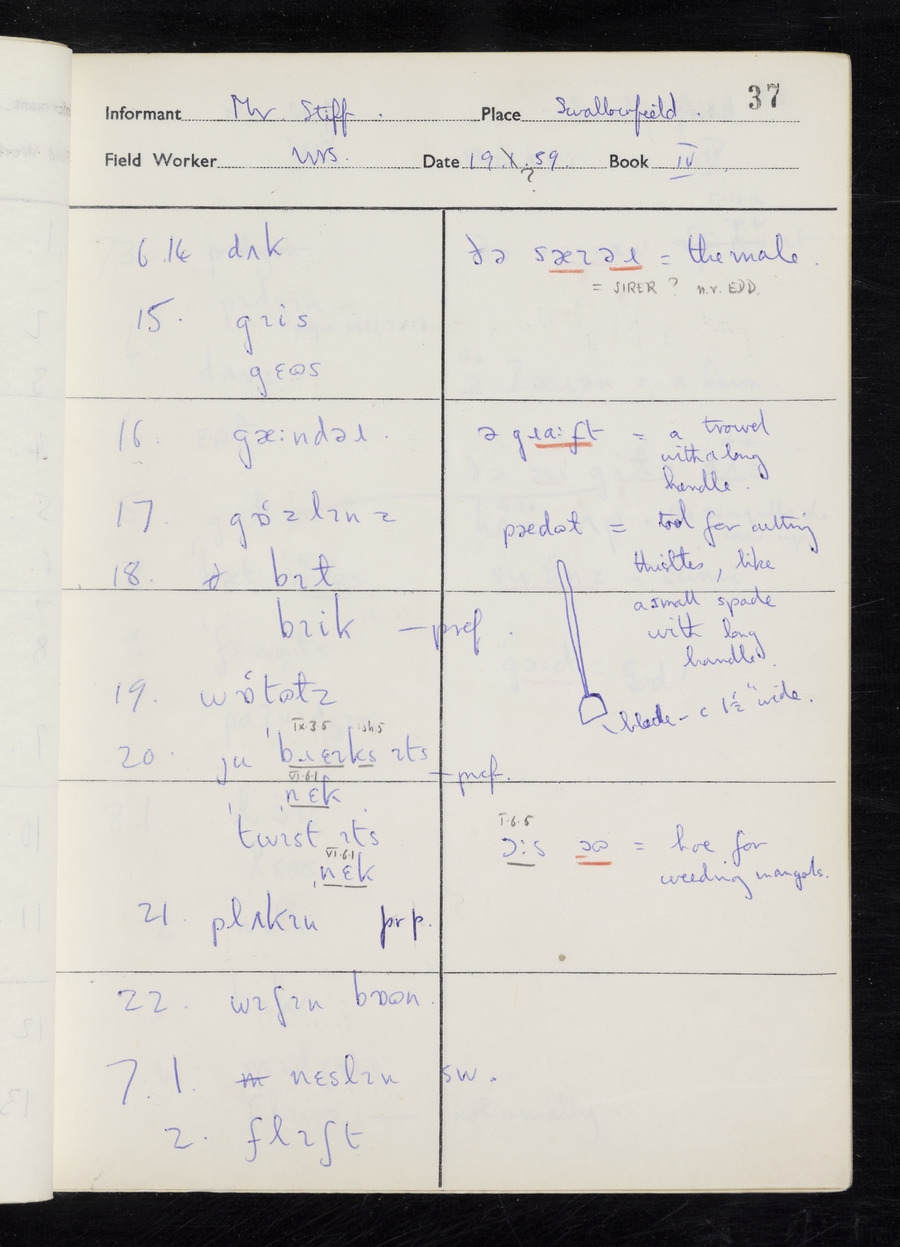 37
Informant Mr. Stiff. Place Swallowfield.
Field Worker WRS. Date 19.X.59. Book IV
?
6.14 dʌk
15. gɹis
gɛɷs
16. gæ:ndəɹ.
17 gɒ̈zlɪnz
18. bɪt
bɹik — pref.
19. wɒ̈tɷtz
IX.3.5
20. ju ˈbɹɛɪks ɪts — pref.
VI.6.1
nɛk
ˈtwɪst ɪts
VI.6.1
ˌnɛk
21. plʌkɪn pr.p.
22. wɪʃɪn bɷn.
7.1. nɛslɪn sw.
2. flɪʃt
ðə sæɪəɹ = the male.
= SIRER? n.r. EDD.
ə gɹa:ft = a trowel
with a long
handle.
pædɷt = tool for cutting
thistles, like
a small spade
with long
handle.
blade - c 1½" wide.
I.6.5
ɔ:s ɔɷ = hoe for
weeding mangols.